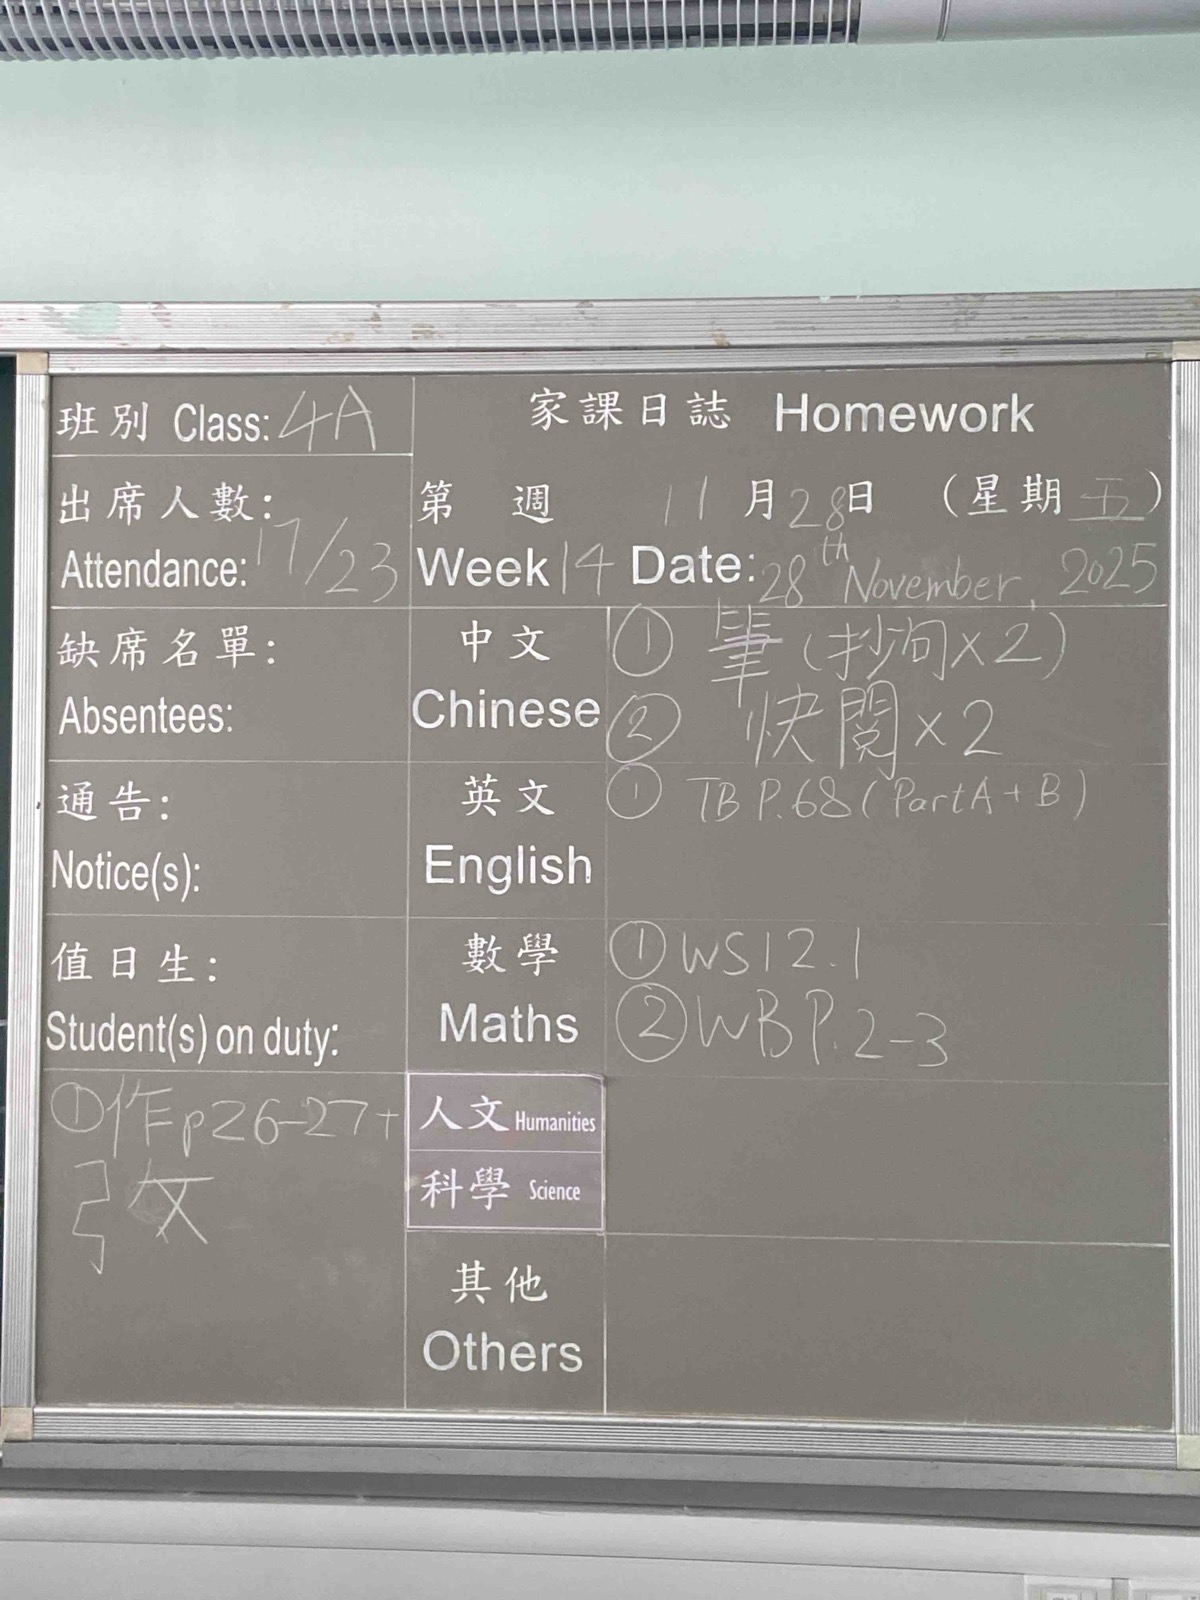 班別 Class: 4A
家課日誌 Homework
出席人數:
Attendance: 17/23
第 週 11月28日 (星期五)
Week 14 Date: 28th November, 2025
缺席名單:
Absentees:
中文
Chinese
① 筆 (抄句×2)
② 快閱×2
通告:
Notice(s):
英文
English
① TB P.68 (Part A + B)
值日生:
Student(s) on duty:
數學
Maths
① WS12.1
② WB P.2-3
① 作p26-27+
人文 Humanities
科學 Science
其他
Others